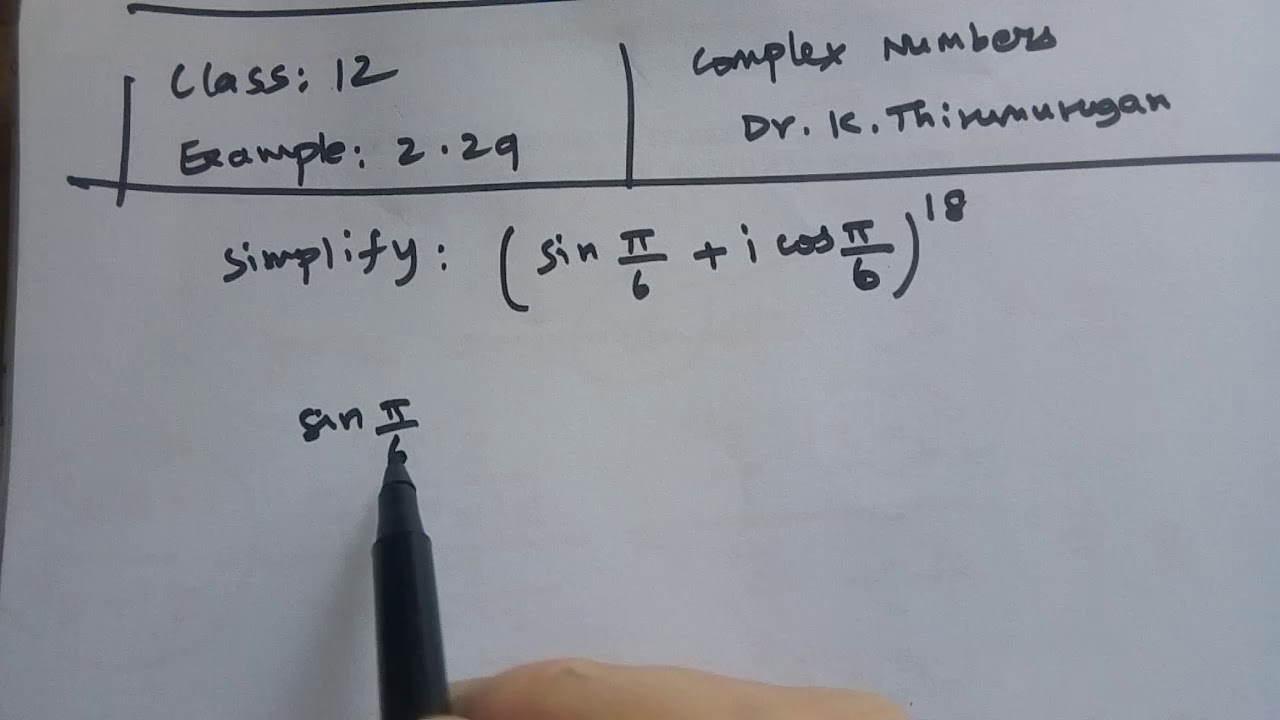 Class: 12
Example: 2.29
Complex Numbers
Dr. K. Thirumurugan
Simplify: (sin π/6 + i cos π/6)^18
sin π/6